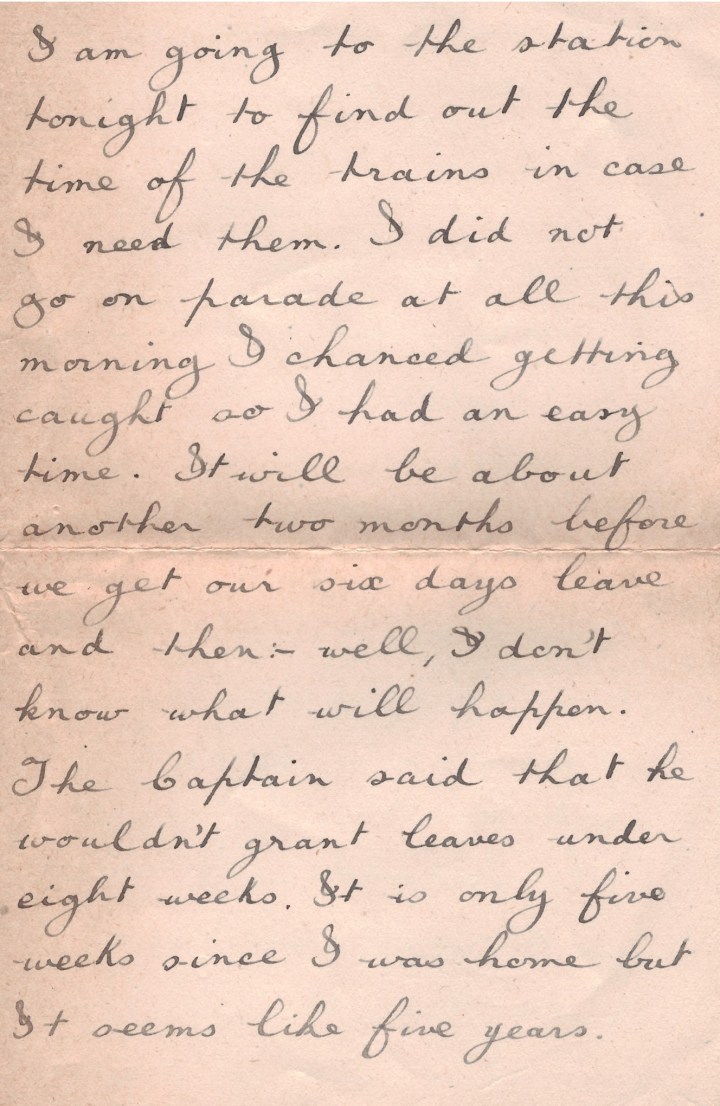 I am going to the station
tonight to find out the
time of the trains in case
I need them. I did not
go on parade at all this
morning I chanced getting
caught so I had an easy
time. It will be about
another two months before
we get our six days leave
and then:- well, I don't
know what will happen.
The Captain said that he
wouldn't grant leaves under
eight weeks. It is only five
weeks since I was home but
It seems like five years.